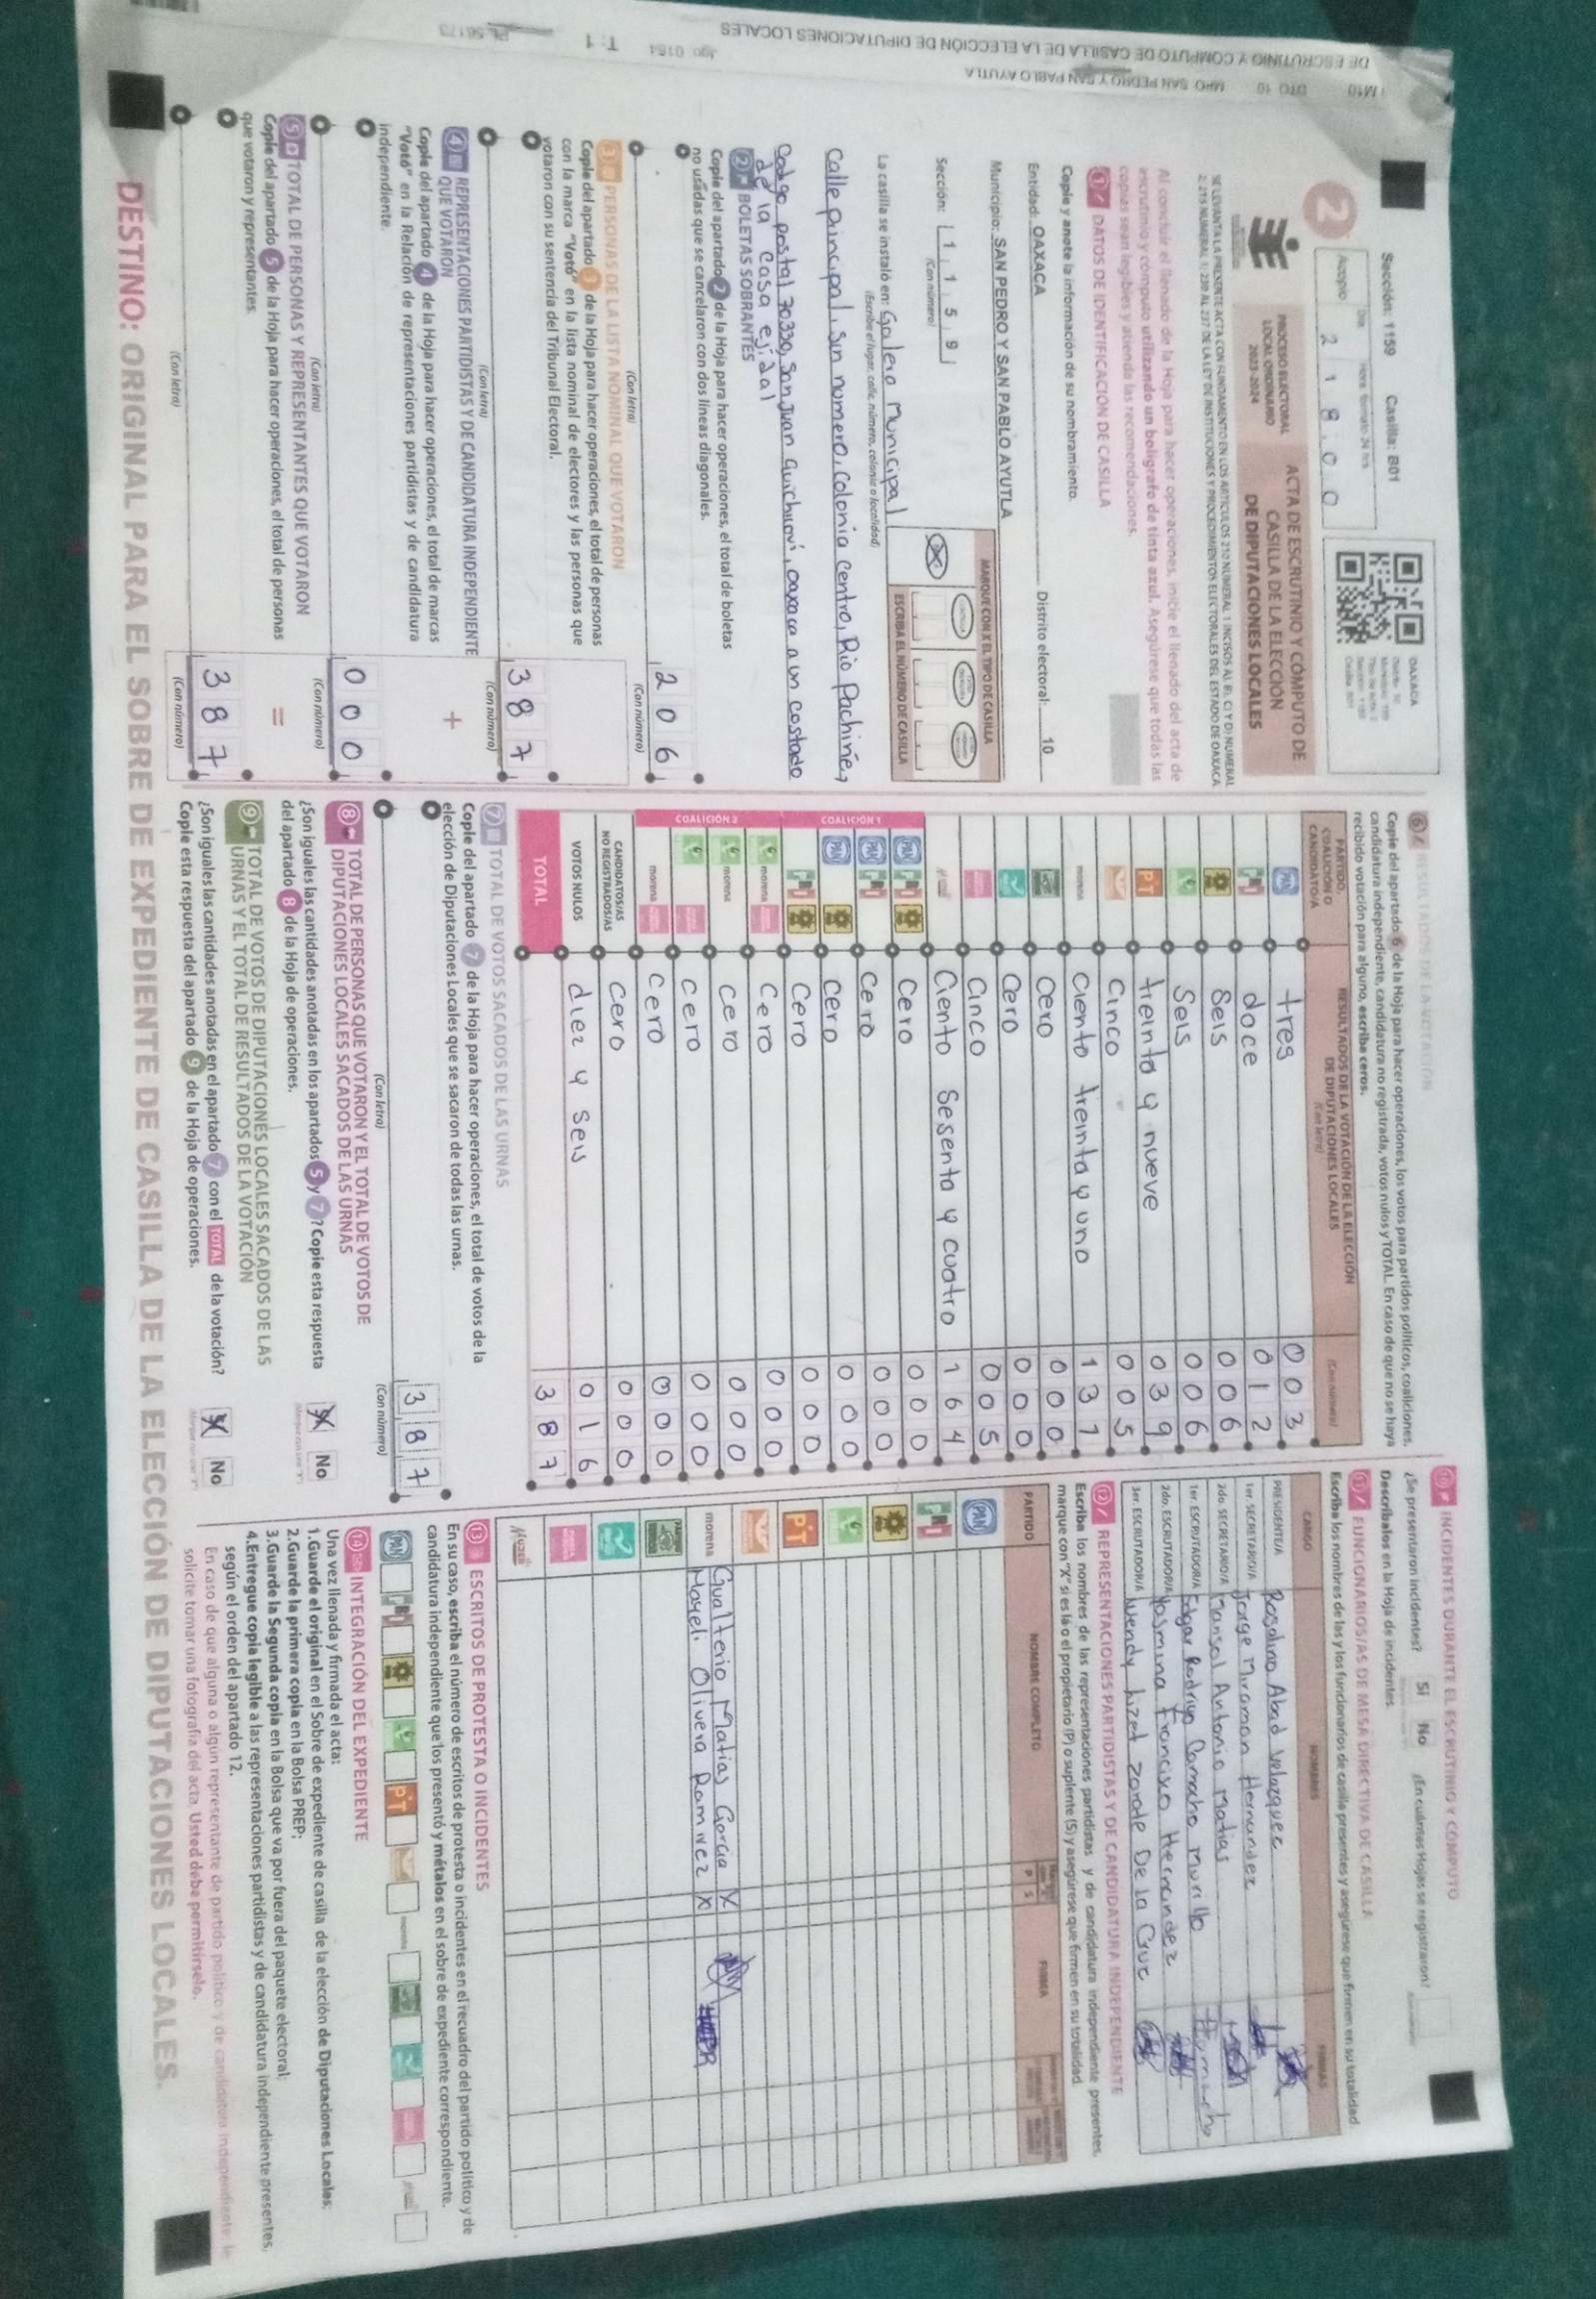 DE ESCRUTINIO Y COMPUTO DE CASILLA DE LA ELECCIÓN DE DIPUTACIONES LOCALES
DTO 10 MPO SAN PEDRO Y SAN PABLO AYUTLA
T: 1
Sección: 1159 Casilla: B01
2
Acopio
Día Hora formato 24 hrs
2 1 8 : 0 0
OAXACA
PROCESO ELECTORAL
LOCAL ORDINARIO
2023-2024
ACTA DE ESCRUTINIO Y CÓMPUTO DE
CASILLA DE LA ELECCIÓN
DE DIPUTACIONES LOCALES
Al concluir el llenado de la Hoja para hacer operaciones, inicie el llenado del acta de
escrutinio y cómputo utilizando un bolígrafo de tinta azul. Asegúrese que todas las
copias sean legibles y atienda las recomendaciones.
1 DATOS DE IDENTIFICACIÓN DE CASILLA
Copie y anote la información de su nombramiento.
Entidad: OAXACA Distrito electoral: 10
Municipio: SAN PEDRO Y SAN PABLO AYUTLA
Sección: 1 1 5 9
(Con número)
MARQUE CON X EL TIPO DE CASILLA
ESCRIBA EL NÚMERO DE CASILLA
La casilla se instaló en: Galera Municipal
(Escriba el lugar, calle, número, colonia o localidad)
Calle principal, sin numero, Colonia Centro, Rio Pachiñe,
Codigo postal 70330, San Juan Guichicovi, Oaxaca a un costado
de la casa ejidal
2 BOLETAS SOBRANTES
Copie del apartado 2 de la Hoja para hacer operaciones, el total de boletas
no usadas que se cancelaron con dos líneas diagonales.
2 0 6
(Con letra) (Con número)
3 PERSONAS DE LA LISTA NOMINAL QUE VOTARON
Copie del apartado 3 de la Hoja para hacer operaciones, el total de personas
con la marca "Votó" en la lista nominal de electores y las personas que
votaron con su sentencia del Tribunal Electoral.
3 8 7
(Con letra) (Con número)
+
4 REPRESENTACIONES PARTIDISTAS Y DE CANDIDATURA INDEPENDIENTE
QUE VOTARON
Copie del apartado 4 de la Hoja para hacer operaciones, el total de marcas
"Votó" en la Relación de representaciones partidistas y de candidatura
independiente.
0 0 0
(Con letra) (Con número)
=
5 TOTAL DE PERSONAS Y REPRESENTANTES QUE VOTARON
Copie del apartado 5 de la Hoja para hacer operaciones, el total de personas
que votaron y representantes.
3 8 7
(Con letra) (Con número)
6 RESULTADOS DE LA VOTACIÓN
Copie del apartado 6 de la Hoja para hacer operaciones, los votos para partidos políticos, coaliciones,
candidatura independiente, candidatura no registrada, votos nulos y TOTAL. En caso de que no se haya
recibido votación para alguno, escriba ceros.
PARTIDO,
COALICIÓN O
CANDIDATO/A
RESULTADOS DE LA VOTACIÓN DE LA ELECCIÓN
DE DIPUTACIONES LOCALES
(Con letra) (Con número)
PAN tres 0 0 3
PRI doce 0 1 2
Seis 0 0 6
Seis 0 0 6
PT treinta y nueve 0 3 9
Cinco 0 0 5
morena Ciento treinta y uno 1 3 1
Cero 0 0 0
Cero 0 0 0
Cinco 0 0 5
Ciento Sesenta y cuatro 1 6 4
COALICIÓN 1
PAN PRI Cero 0 0 0
PAN PRI Cero 0 0 0
PAN Cero 0 0 0
PRI Cero 0 0 0
COALICIÓN 2
morena Cero 0 0 0
morena Cero 0 0 0
Cero 0 0 0
morena Cero 0 0 0
CANDIDATOS/AS
NO REGISTRADOS/AS Cero 0 0 0
VOTOS NULOS diez y seis 0 1 6
TOTAL 3 8 7
7 TOTAL DE VOTOS SACADOS DE LAS URNAS
Copie del apartado 7 de la Hoja para hacer operaciones, el total de votos de la
elección de Diputaciones Locales que se sacaron de todas las urnas.
3 8 7
(Con letra) (Con número)
8 TOTAL DE PERSONAS QUE VOTARON Y EL TOTAL DE VOTOS DE
DIPUTACIONES LOCALES SACADOS DE LAS URNAS
¿Son iguales las cantidades anotadas en los apartados 5 y 7? Copie esta respuesta
del apartado 8 de la Hoja de operaciones.
No
9 TOTAL DE VOTOS DE DIPUTACIONES LOCALES SACADOS DE LAS
URNAS Y EL TOTAL DE RESULTADOS DE LA VOTACIÓN
¿Son iguales las cantidades anotadas en el apartado 7 con el TOTAL de la votación?
Copie esta respuesta del apartado 9 de la Hoja de operaciones.
No
10 INCIDENTES DURANTE EL ESCRUTINIO Y CÓMPUTO
¿Se presentaron incidentes? Sí No ¿En cuántas Hojas se registraron?
Descríbalos en la Hoja de incidentes.
11 FUNCIONARIOS/AS DE MESA DIRECTIVA DE CASILLA
Escriba los nombres de las y los funcionarios de casilla presentes y asegúrese que firmen en su totalidad
CARGO NOMBRES FIRMAS
PRESIDENTE/A Rosalino Abad Velazquez
1er. SECRETARIO/A Jorge Miramon Hernandez
2do. SECRETARIO/A Marisol Antonio Matias
1er. ESCRUTADOR/A Edgar Rodrigo Camacho Murillo
2do. ESCRUTADOR/A Yasmina Francisco Hernandez
3er. ESCRUTADOR/A Wendy Lizet Zarate De la Cruz
12 REPRESENTACIONES PARTIDISTAS Y DE CANDIDATURA INDEPENDIENTE
Escriba los nombres de las representaciones partidistas y de candidatura independiente presentes,
marque con "X" si es la o el propietario (P) o suplente (S) y asegúrese que firmen en su totalidad.
PARTIDO NOMBRE COMPLETO P S FIRMA
PAN
PRI
PT
morena Gualterio Matias Garcia X
Mayeli Olivera Ramirez X
13 ESCRITOS DE PROTESTA O INCIDENTES
En su caso, escriba el número de escritos de protesta o incidentes en el recuadro del partido político y de
candidatura independiente que los presentó y métalos en el sobre de expediente correspondiente.
PAN PRI PT morena
14 INTEGRACIÓN DEL EXPEDIENTE
Una vez llenada y firmada el acta:
1.Guarde el original en el Sobre de expediente de casilla de la elección de Diputaciones Locales;
2.Guarde la primera copia en la Bolsa PREP;
3.Guarde la Segunda copia en la Bolsa que va por fuera del paquete electoral;
4.Entregue copia legible a las representaciones partidistas y de candidatura independiente presentes,
según el orden del apartado 12.
En caso de que alguna o algún representante de partido político y de candidatura independiente le
solicite tomar una fotografía del acta. Usted debe permitírselo.
DESTINO: ORIGINAL PARA EL SOBRE DE EXPEDIENTE DE CASILLA DE LA ELECCIÓN DE DIPUTACIONES LOCALES.